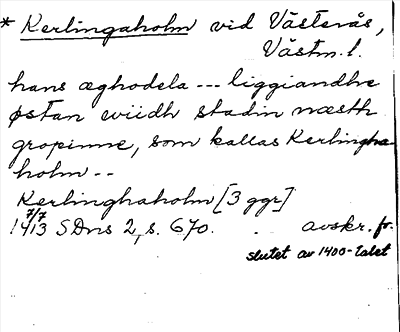 * Kerlingaholm vid Västerås,
Västm. l.
hans æghodela --- liggiandhe
østan wiidh stadin næsth
gropinne, som kallas Kerlingha-
holm --
Kerlinghaholm [3 ggr]
7/7
1413 SDns 2, s. 670. . avskr. fr.
slutet av 1400-talet